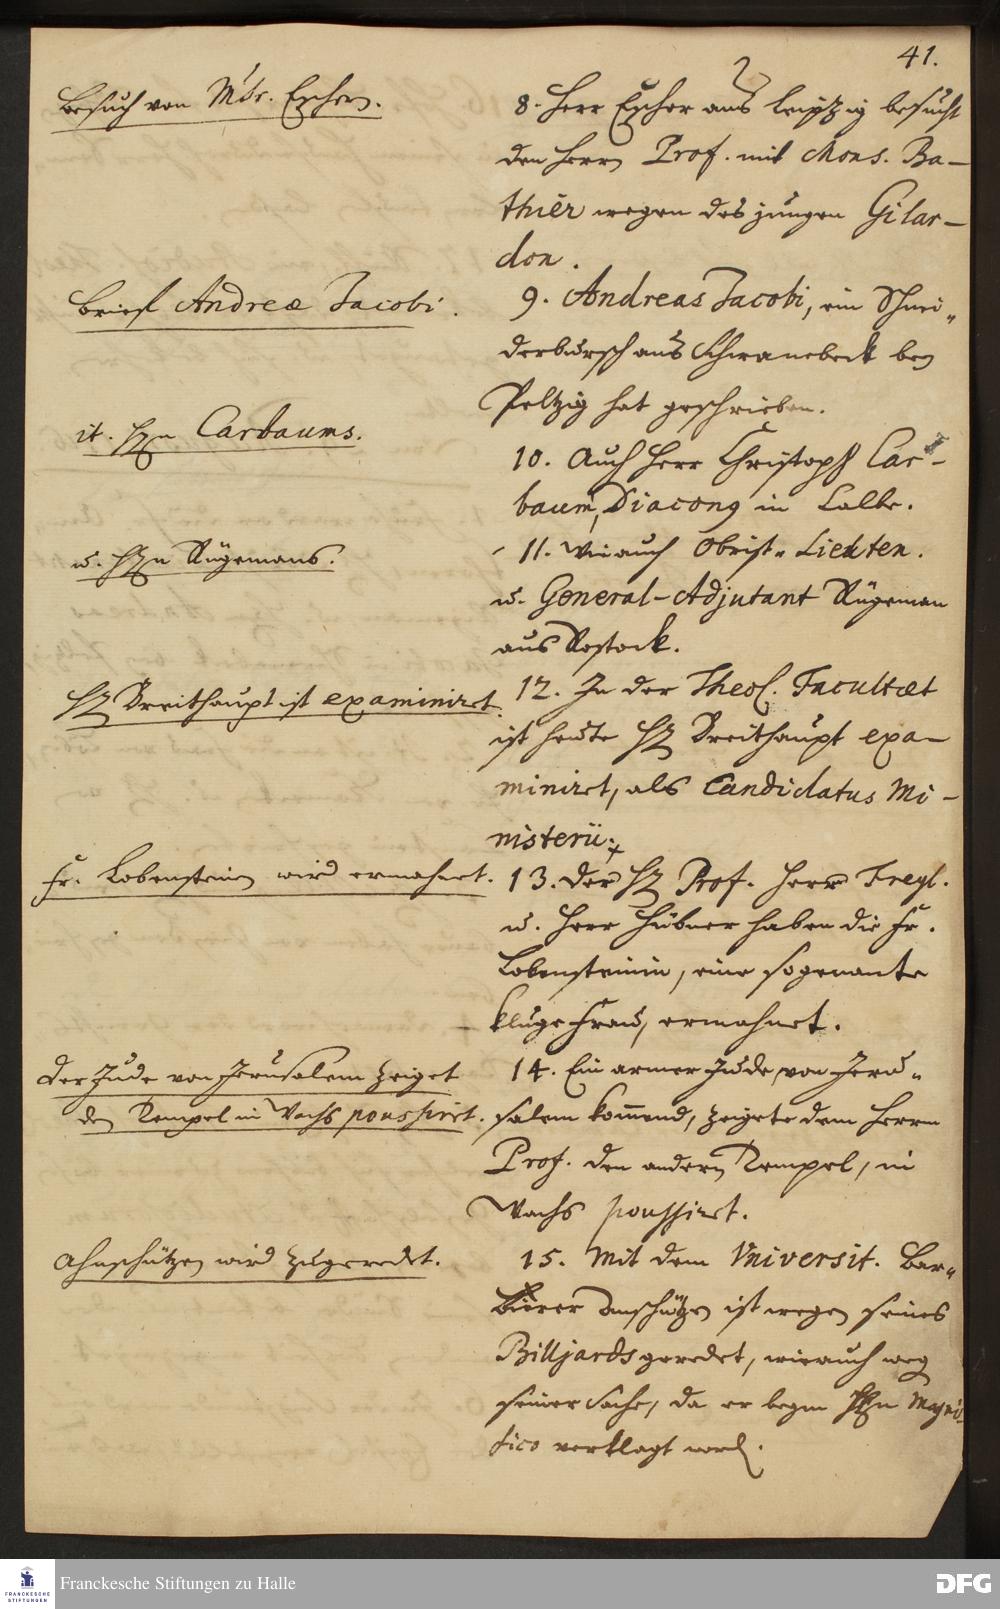 41.
Besuch von Msr. Eschern.
8. Herr Escher aus Leipzig besucht
den Herrn Prof. mit Mons. Ba-
thier wegen des jungen Gilar-
don.
Brief Andreæ Jacobi.
9. Andreas Jacobi, ein Schnei„
derbursch aus Schwanebeck bey
Peltzig hat geschrieben.
it. Hrn Carbaums.
10. Auch Herr Christoph Car-
baum, Diaconq in Calbe.
u. Hrn Rügemans.
11. Wie auch Obrist„ Lieuten.
u. General-Adjutant Rügeman
aus Rostock.
Hr Breithaupt ist examiniret.
12. In der Theol. Facultæt
ist heute Hr Breithaupt exa-
miniret, als Candidatus Mi-
nisterii.
Fr. Lobensteinin wird ermahnet.
13. Der Hr Prof. Herr Freyl.
u. Herr Hübner haben die Fr.
Lobensteinin, eine sogenante
kluge Frau, ermahnet.
Der Jude von Jerusalem zeiget
den Tempel in Wachs poussiret.
14. Ein armer Jude, von Jeru„
salem kommend, zeigete dem Herrn
Prof. den andern Tempel, in
Wachs poussiret.
Ahnschützen wird zugeredet.
15. Mit dem Universit. Bar„
bierer Anschützen ist wegen seines
Billjards geredet, wie auch weg
seiner Sache, da er beym Hrn Magni-
fico verklagt word.
FRANCKESCHE
STIFTUNGEN
Franckesche Stiftungen zu Halle
DFG